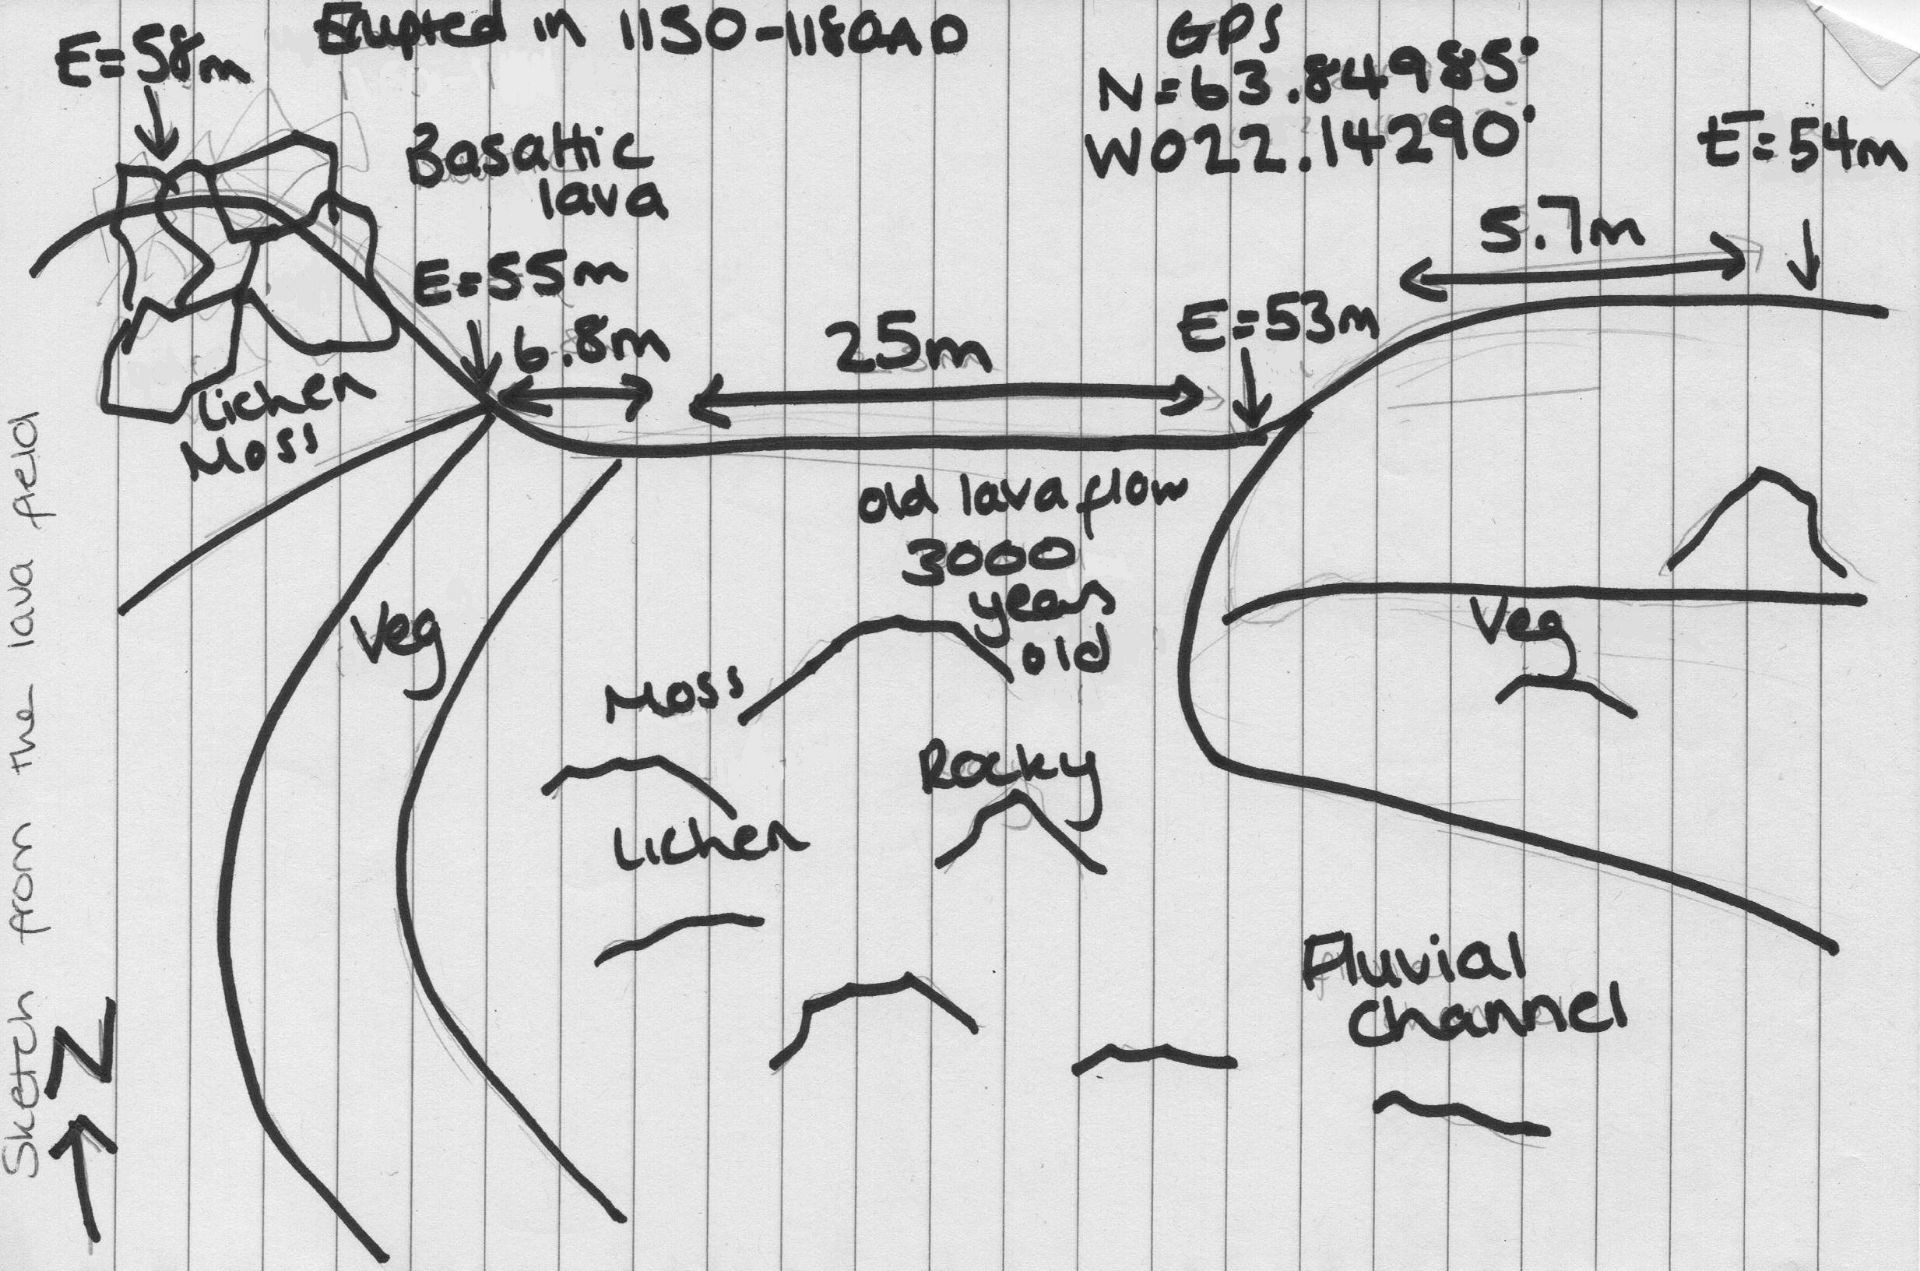 E=58m
Erupted in 1150-1180AD
GPS
N=63.84985°
W022.14290°
E=54m
Basaltic
lava
5.7m
E=55m
6.8m
25m
E=53m
Lichen
Moss
old lava flow
3000
years
old
Veg
Veg
Moss
Rocky
Lichen
Fluvial
channel
N
Sketch from the lava field